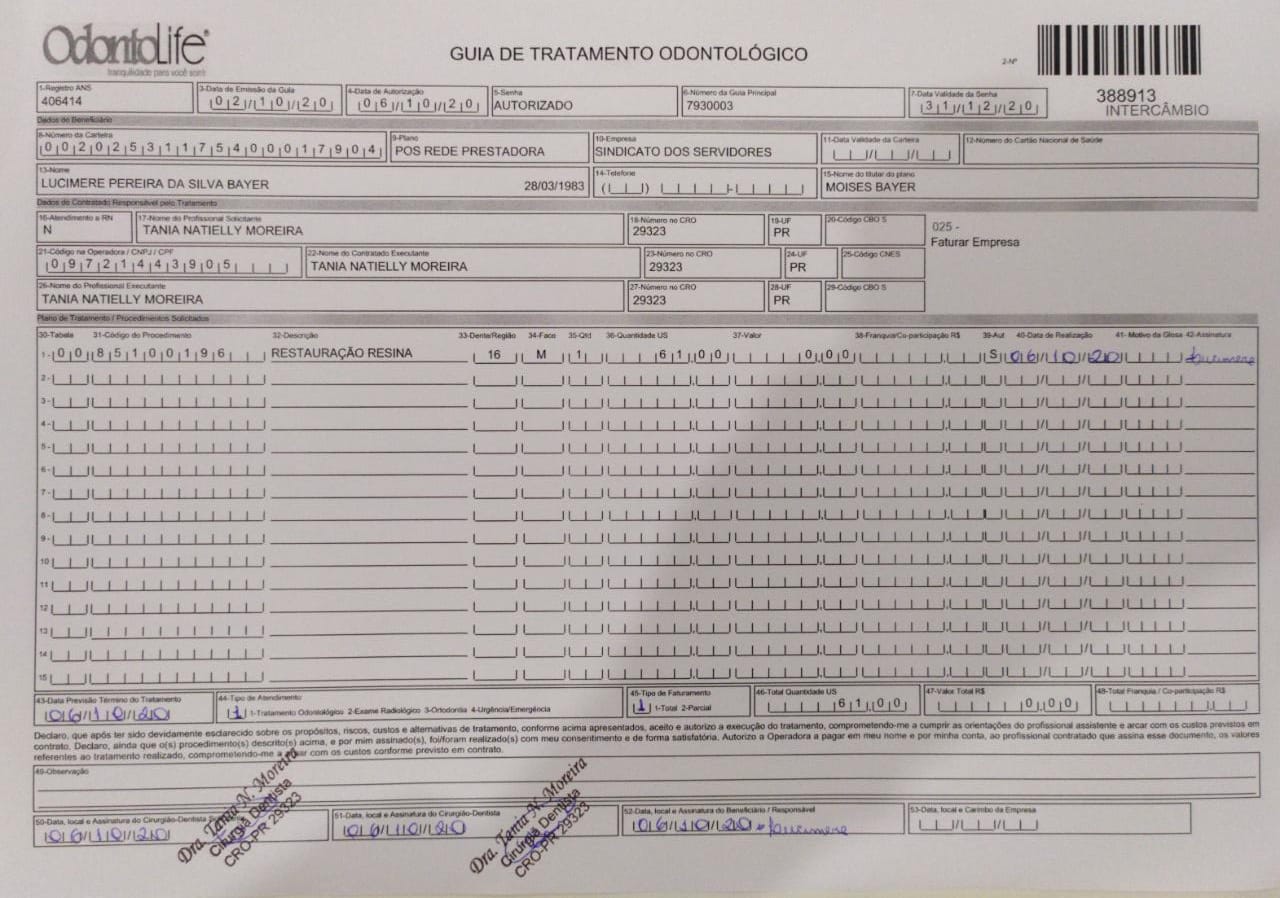 OdontoLife®
tranquilidade para você sorrir
GUIA DE TRATAMENTO ODONTOLÓGICO
2-Nº
388913
INTERCÂMBIO
1-Registro ANS
406414
3-Data de Emissão da Guia
02/10/20
4-Data de Autorização
06/10/20
5-Senha
AUTORIZADO
6-Número da Guia Principal
7930003
7-Data Validade da Senha
31/12/20
Dados do Beneficiário
8-Número da Carteira
00202531175400017904
9-Plano
POS REDE PRESTADORA
10-Empresa
SINDICATO DOS SERVIDORES
11-Data Validade da Carteira
12-Número do Cartão Nacional de Saúde
13-Nome
LUCIMERE PEREIRA DA SILVA BAYER 28/03/1983
14-Telefone
15-Nome do titular do plano
MOISES BAYER
Dados do Contratado Responsável pelo Tratamento
16-Atendimento a RN
N
17-Nome do Profissional Solicitante
TANIA NATIELLY MOREIRA
18-Número no CRO
29323
19-UF
PR
20-Código CBO S
025 -
Faturar Empresa
21-Código na Operadora / CNPJ / CPF
09721443905
22-Nome do Contratado Executante
TANIA NATIELLY MOREIRA
23-Número no CRO
29323
24-UF
PR
25-Código CNES
26-Nome do Profissional Executante
TANIA NATIELLY MOREIRA
27-Número no CRO
29323
28-UF
PR
29-Código CBO S
Plano de Tratamento / Procedimentos Solicitados
30-Tabela 31-Código do Procedimento 32-Descrição 33-Dente/Região 34-Face 35-Qtd 36-Quantidade US 37-Valor 38-Franquia/Co-participação R$ 39-Aut 40-Data de Realização 41- Motivo da Glosa 42-Assinatura
1- 00 85100196 RESTAURAÇÃO RESINA 16 M 1 61,00 0,00 S 06/10/20 Lucimere
2-
3-
4-
5-
6-
7-
8-
9-
10
11
12
13
14
15
43-Data Previsão Término do Tratamento
06/10/20
44-Tipo de Atendimento
1 1-Tratamento Odontológico 2-Exame Radiológico 3-Ortodontia 4-Urgência/Emergência
45-Tipo de Faturamento
1 1-Total 2-Parcial
46-Total Quantidade US
61,00
47-Valor Total R$
0,00
48-Total Franquia / Co-participação R$
Declaro, que após ter sido devidamente esclarecido sobre os propósitos, riscos, custos e alternativas de tratamento, conforme acima apresentados, aceito e autorizo a execução do tratamento, comprometendo-me a cumprir as orientações do profissional assistente e arcar com os custos previstos em
contrato. Declaro, ainda que o(s) procedimento(s) descrito(s) acima, e por mim assinado(s), foi/foram realizado(s) com meu consentimento e de forma satisfatória. Autorizo a Operadora a pagar em meu nome e por minha conta, ao profissional contratado que assina esse documento, os valores
referentes ao tratamento realizado, comprometendo-me a arcar com os custos conforme previsto em contrato.
49-Observação
50-Data, local e Assinatura do Cirurgião-Dentista
06/10/20
Dra. Tania N. Moreira
Cirurgiã Dentista
CRO-PR 29323
51-Data, local e Assinatura do Cirurgião-Dentista
06/10/20
Dra. Tania N. Moreira
Cirurgiã Dentista
CRO-PR 29323
52-Data, local e Assinatura do Beneficiário / Responsável
06/10/20 Lucimere
53-Data, local e Carimbo da Empresa